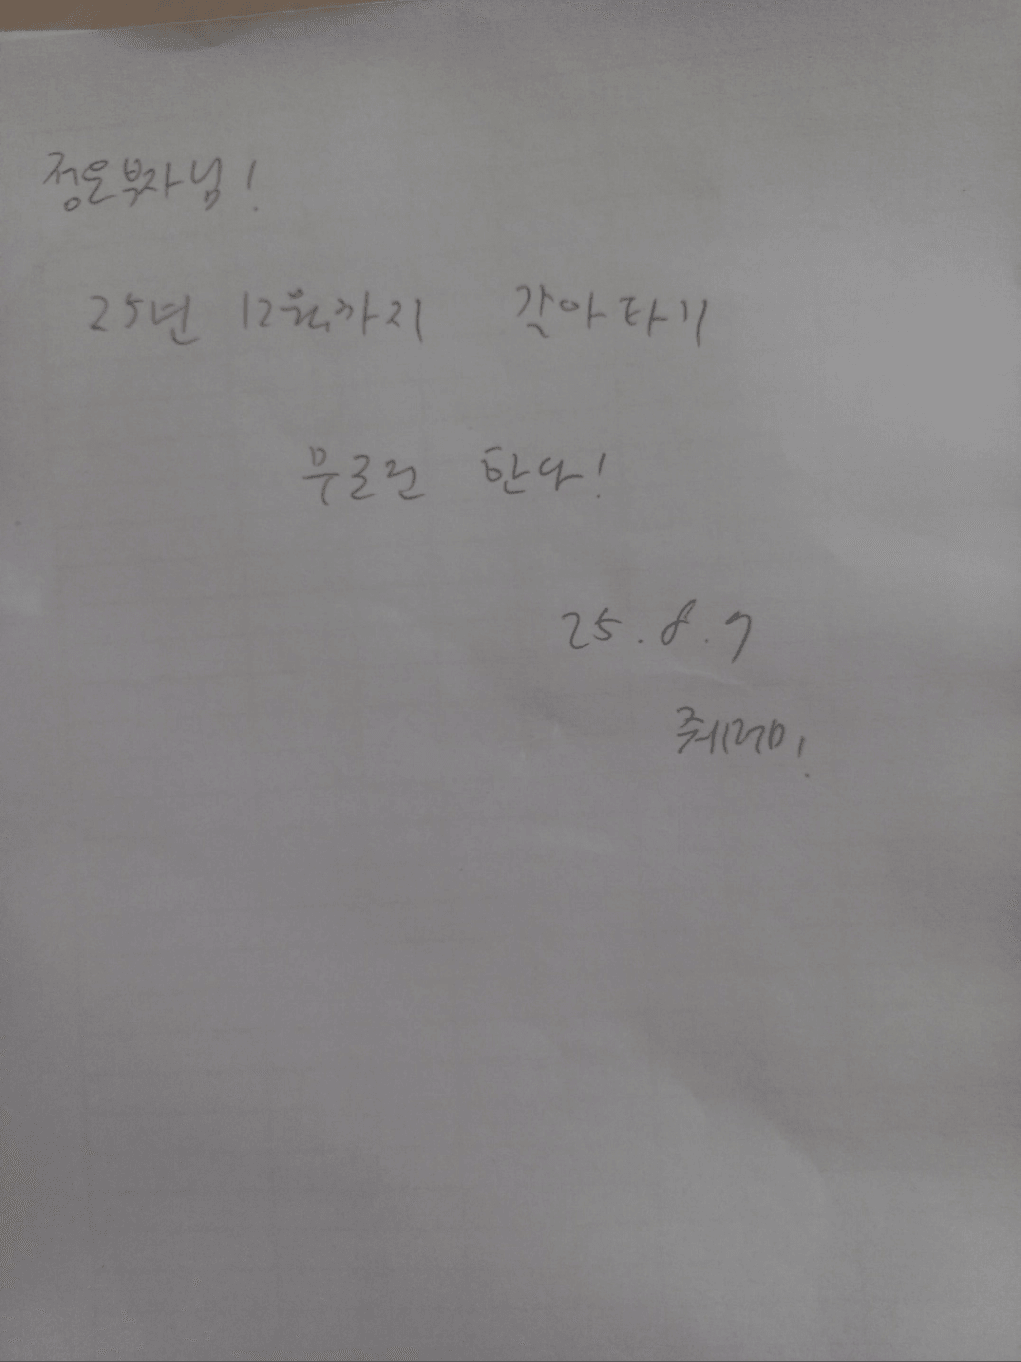 정은부자님!
25년 12월까지 갈아타기
무조건 한다!
25.8.9
쥐레미!